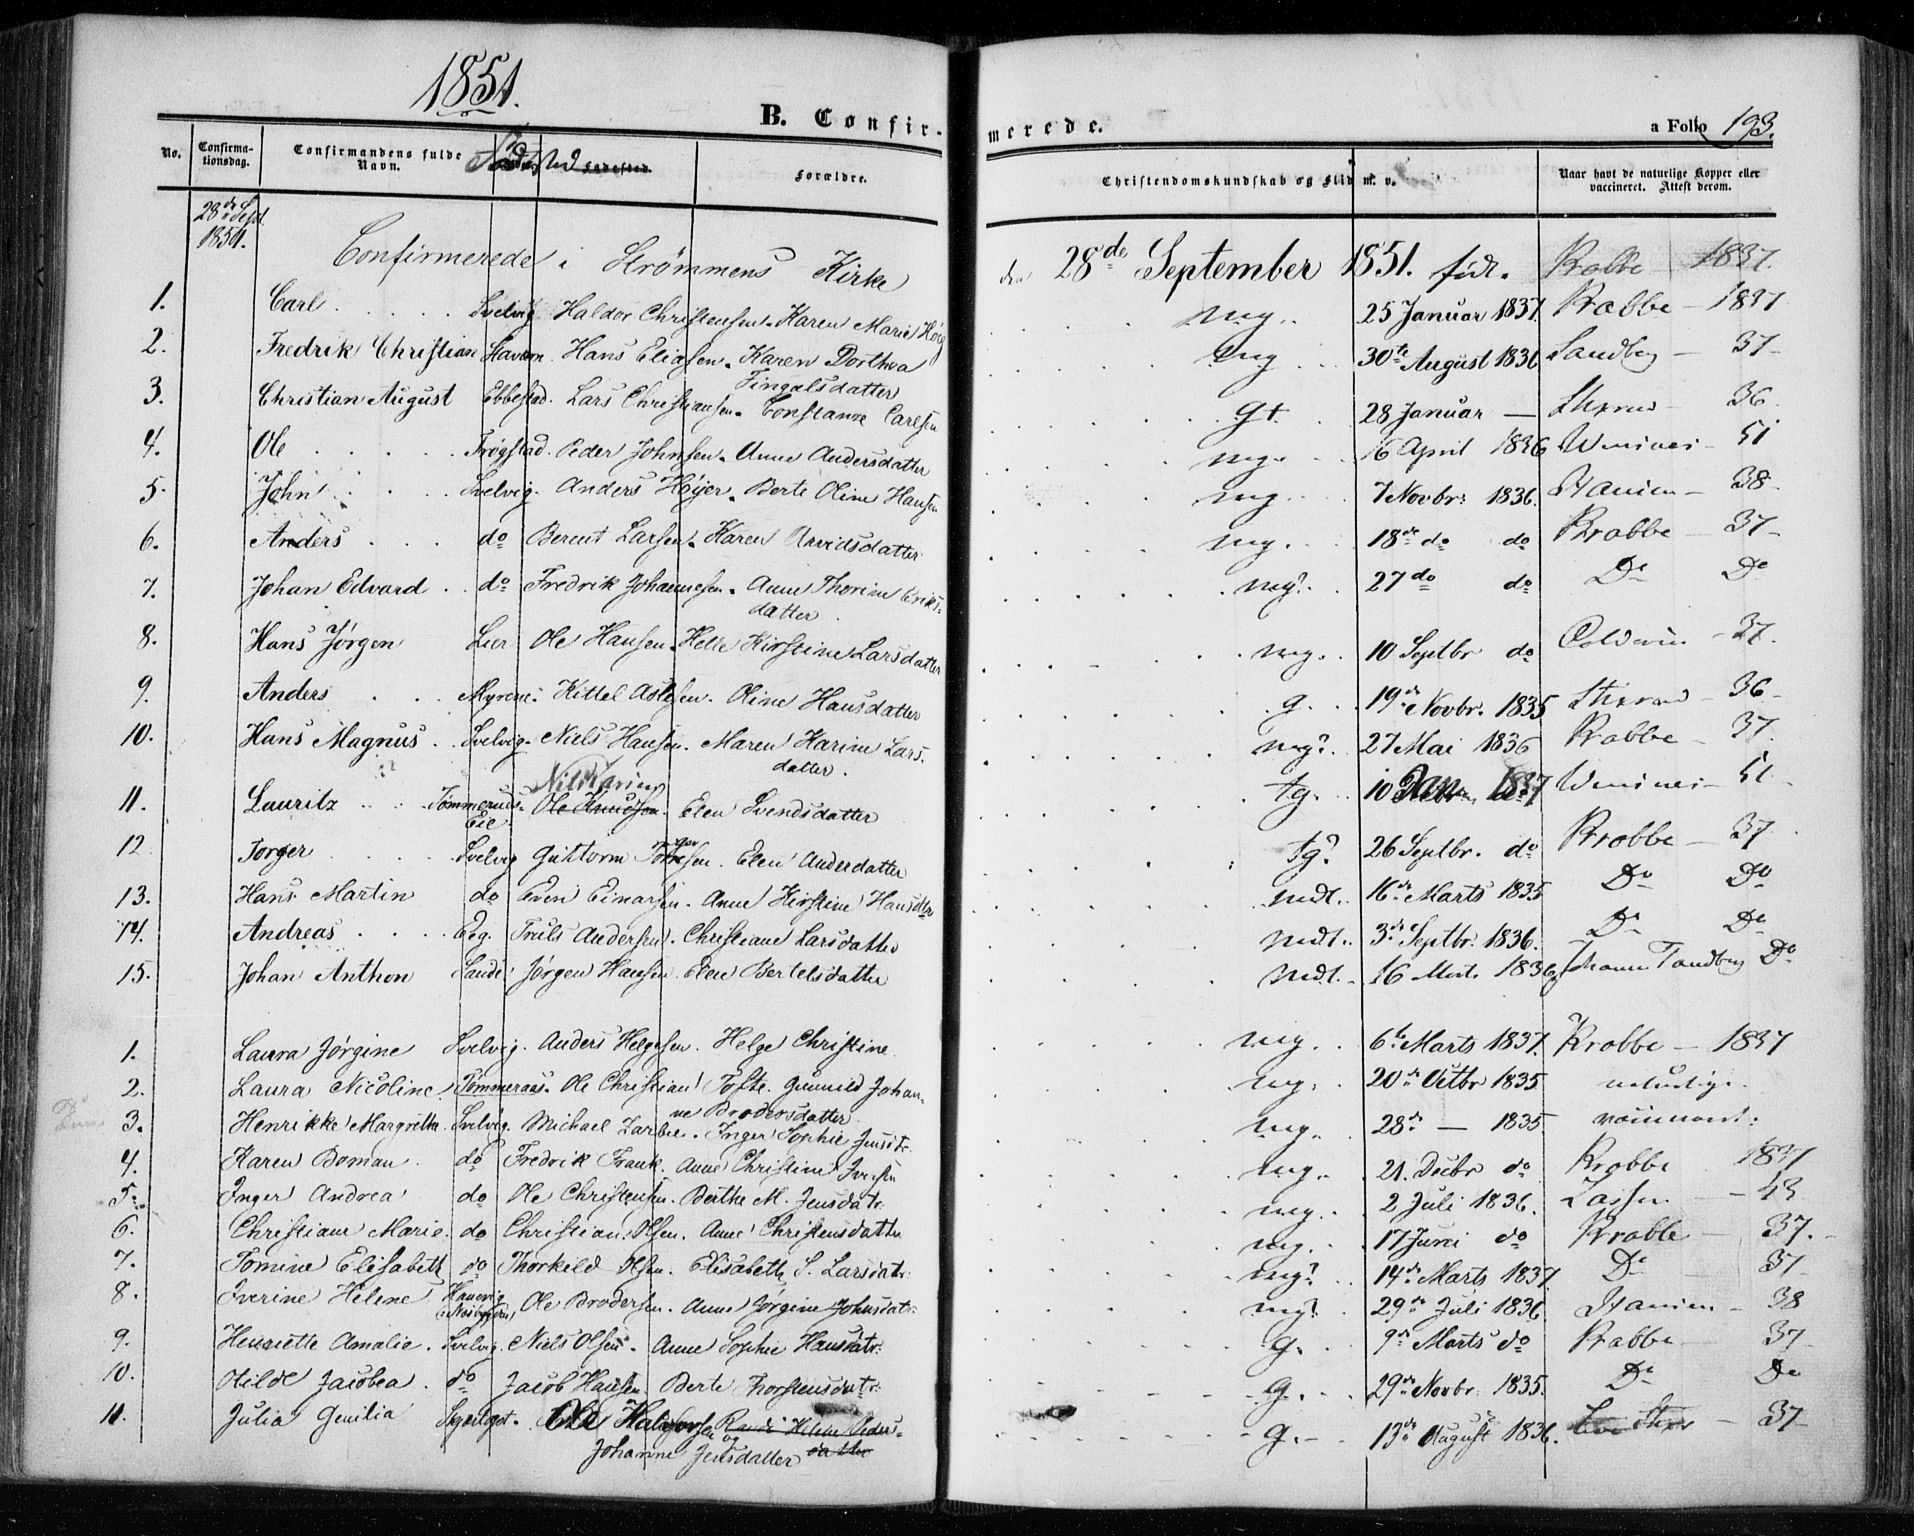 1851.
B. Confirmerede.
a Folio 193.
No. Confirmationsdag. Confirmandens fulde Navn. Fødested. Forældre. Christendomskundskab og Flid m. v. Naar havt de naturlige Kopper eller vaccineret. Attest derom.
28de Sept. 1851.
Confirmerede i Strømmens Kirke den 28de September 1851. født. Krabbe 1837.
1. Carl Svelvig Haldor Christensen. Karen Marie Høeg mg. 25 Januar 1837. Krabbe – 1837
2. Fredrik Christian Stavern. Hans Eliasen. Karen Dorthea Fingalsdatter mg 30te August 1836 Sandberg – 37
3. Christian August Ebbestad. Lars Christiansen. Constance Carlsen gt. 28 Januar — – 36
4. Ole Frøgstad. Peder Johnsen. Anne Andersdatter mg. 16 April 1836 – 51
5. John Svelvig. Anders Høyer. Berte Oline Hansen mg. 7 Novbr: 1836. Hansen – 38
6. Anders do Berent Larsen. Karen Arvidsdatter mg. 18de do do Krabbe – 37
7. Johan Edvard do Fredrik Johannesen. Anne Thorine Eriksdatter. mg? 27 do do Do Do
8. Hans Jørgen Lier Ole Hansen. Helle Kirstine Larsdatter mg. 10 Septbr do – 37.
9. Anders Myrene. Kittel Aslesen. Oline Hansdatter g. 19de Novbr. 1835 – 36
10. Hans Magnus Svelvig. Niels Hansen. Maren Karine Larsdatter. mg? 27 Mai 1836 Krabbe – 37.
11. Lauritz Tømmeraas Eie. Ole Knudsen. Elen Svendsdatter tg. 10 Jan 1837 – 51
12 Torger Svelvig Guttorm Elen Andersdatter tg? 26 Septbr. do Krabbe – 37
13. Hans Martin do Even Einarsen. Anne Kirstine Hansdtr mdt. 16de Marts 1835 Do Do
14. Andreas Eeg. Truls Andersen. Christiane Larsdatter mdt. 3de Septbr. 1836. Do Do
15. Johan Anthon Sande. Jørgen Hansen. Elen Bertelsdatter mdt. 16 1836 Johanne Tandberg Do
1. Laura Jørgine Svelvig. Anders Helgesen. Helge Christine mg. 6te Marts 1837. Krabbe – 1837
2. Laura Nicoline. Tømmeraas. Ole Christian Tofte. Gunnild Johanne Brodersdatter mg. 20de Octbr 1835 naturlige.
3. Henrikke Margrethe Svelvig. Michael Inger Sophie Jensdtr. mg. 28de — 1835
4. Karen Boman. do Fredrik Frank. Anne Christine Iversen mg. 21. Decbr do Krabbe 1837
5. Inger Andrea do Ole Christensen. Berthe M. Jensdatr. mg. 2 Juli 1836. Lassen – 43
6. Christiane Marie. do Christian Olsen. Anne Christensdatter mg. 17 Juni do Krabbe – 37.
7. Tomine Elisabeth do Thorkild Olsen. Elisabeth S. Larsdatr. mg? 14de Marts 1837. Do 37
8. Iverine Helene Ole Brodersen. Anne Jørgine Johnsdatr. mg? 29de Juli 1836. Hansen – 38
9. Henriette Amalie. Svelvig. Niels Olsen. Anne Sophie Hansdatr. g. 9de Marts do Krabbe 37
10. Otilde Jacobea. do Jacob Hansen. Berte Thorstensdatr. g. 29de Novbr. 1835. Do Do
11. Julia Emilia Ole Halvorsen Randi Helene Pedersdatter og Johanne Jensdatter g. 13de August 1836. – 37